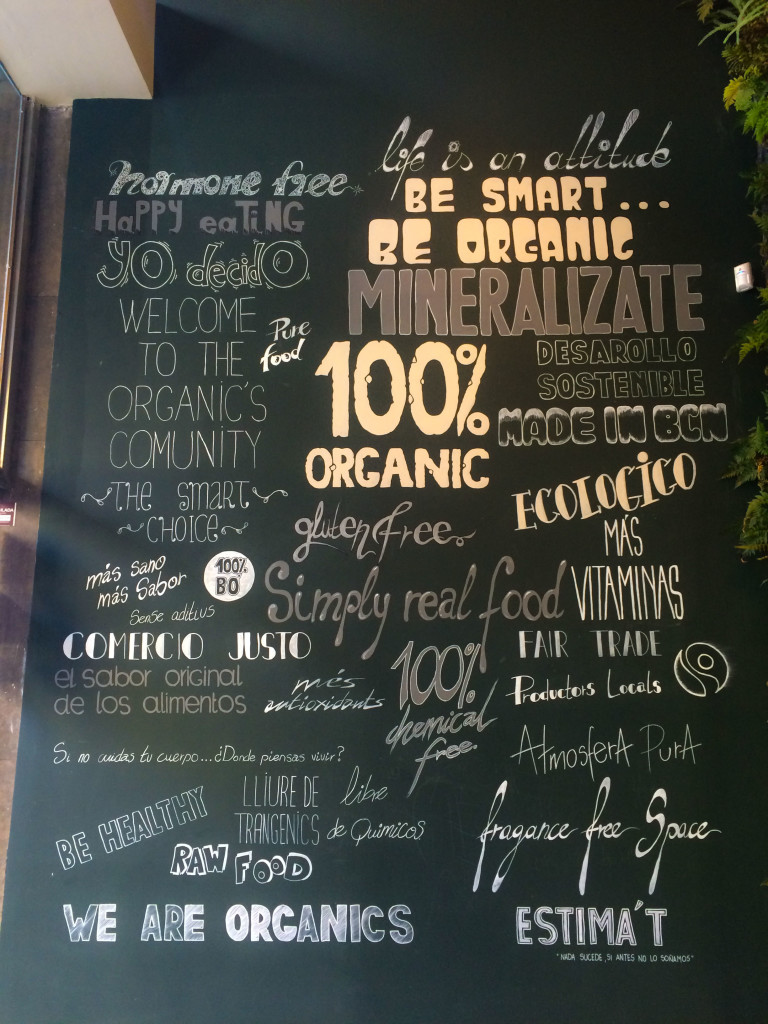 life is an attitude
hormone free
BE SMART...
HAPPY eATiNG
BE ORGANIC
YO decidO
MINERALIZATE
WELCOME
TO THE
ORGANIC'S
COMUNITY
Pure
food
100%
ORGANIC
DESAROLLO
SOSTENIBLE
MADE IN BCN
THE SMART
CHOICE
gluten free
ECOLOGICO
MÁS
VITAMINAS
más sano
más sabor
100%
BO
Sense aditius
Simply real food
COMERCIO JUSTO
FAIR TRADE
el sabor original
de los alimentos
més
antioxidants
100%
chemical
free.
Productors Locals
Si no cuidas tu cuerpo...¿Donde piensas vivir?
AtmosferA PurA
BE HEALTHY
LLIURE DE
TRANGENICS
libre
de Quimicos
fragance free Space
RAW FOOD
WE ARE ORGANICS
ESTIMA'T
"NADA SUCEDE, SI ANTES NO LO SOÑAMOS"